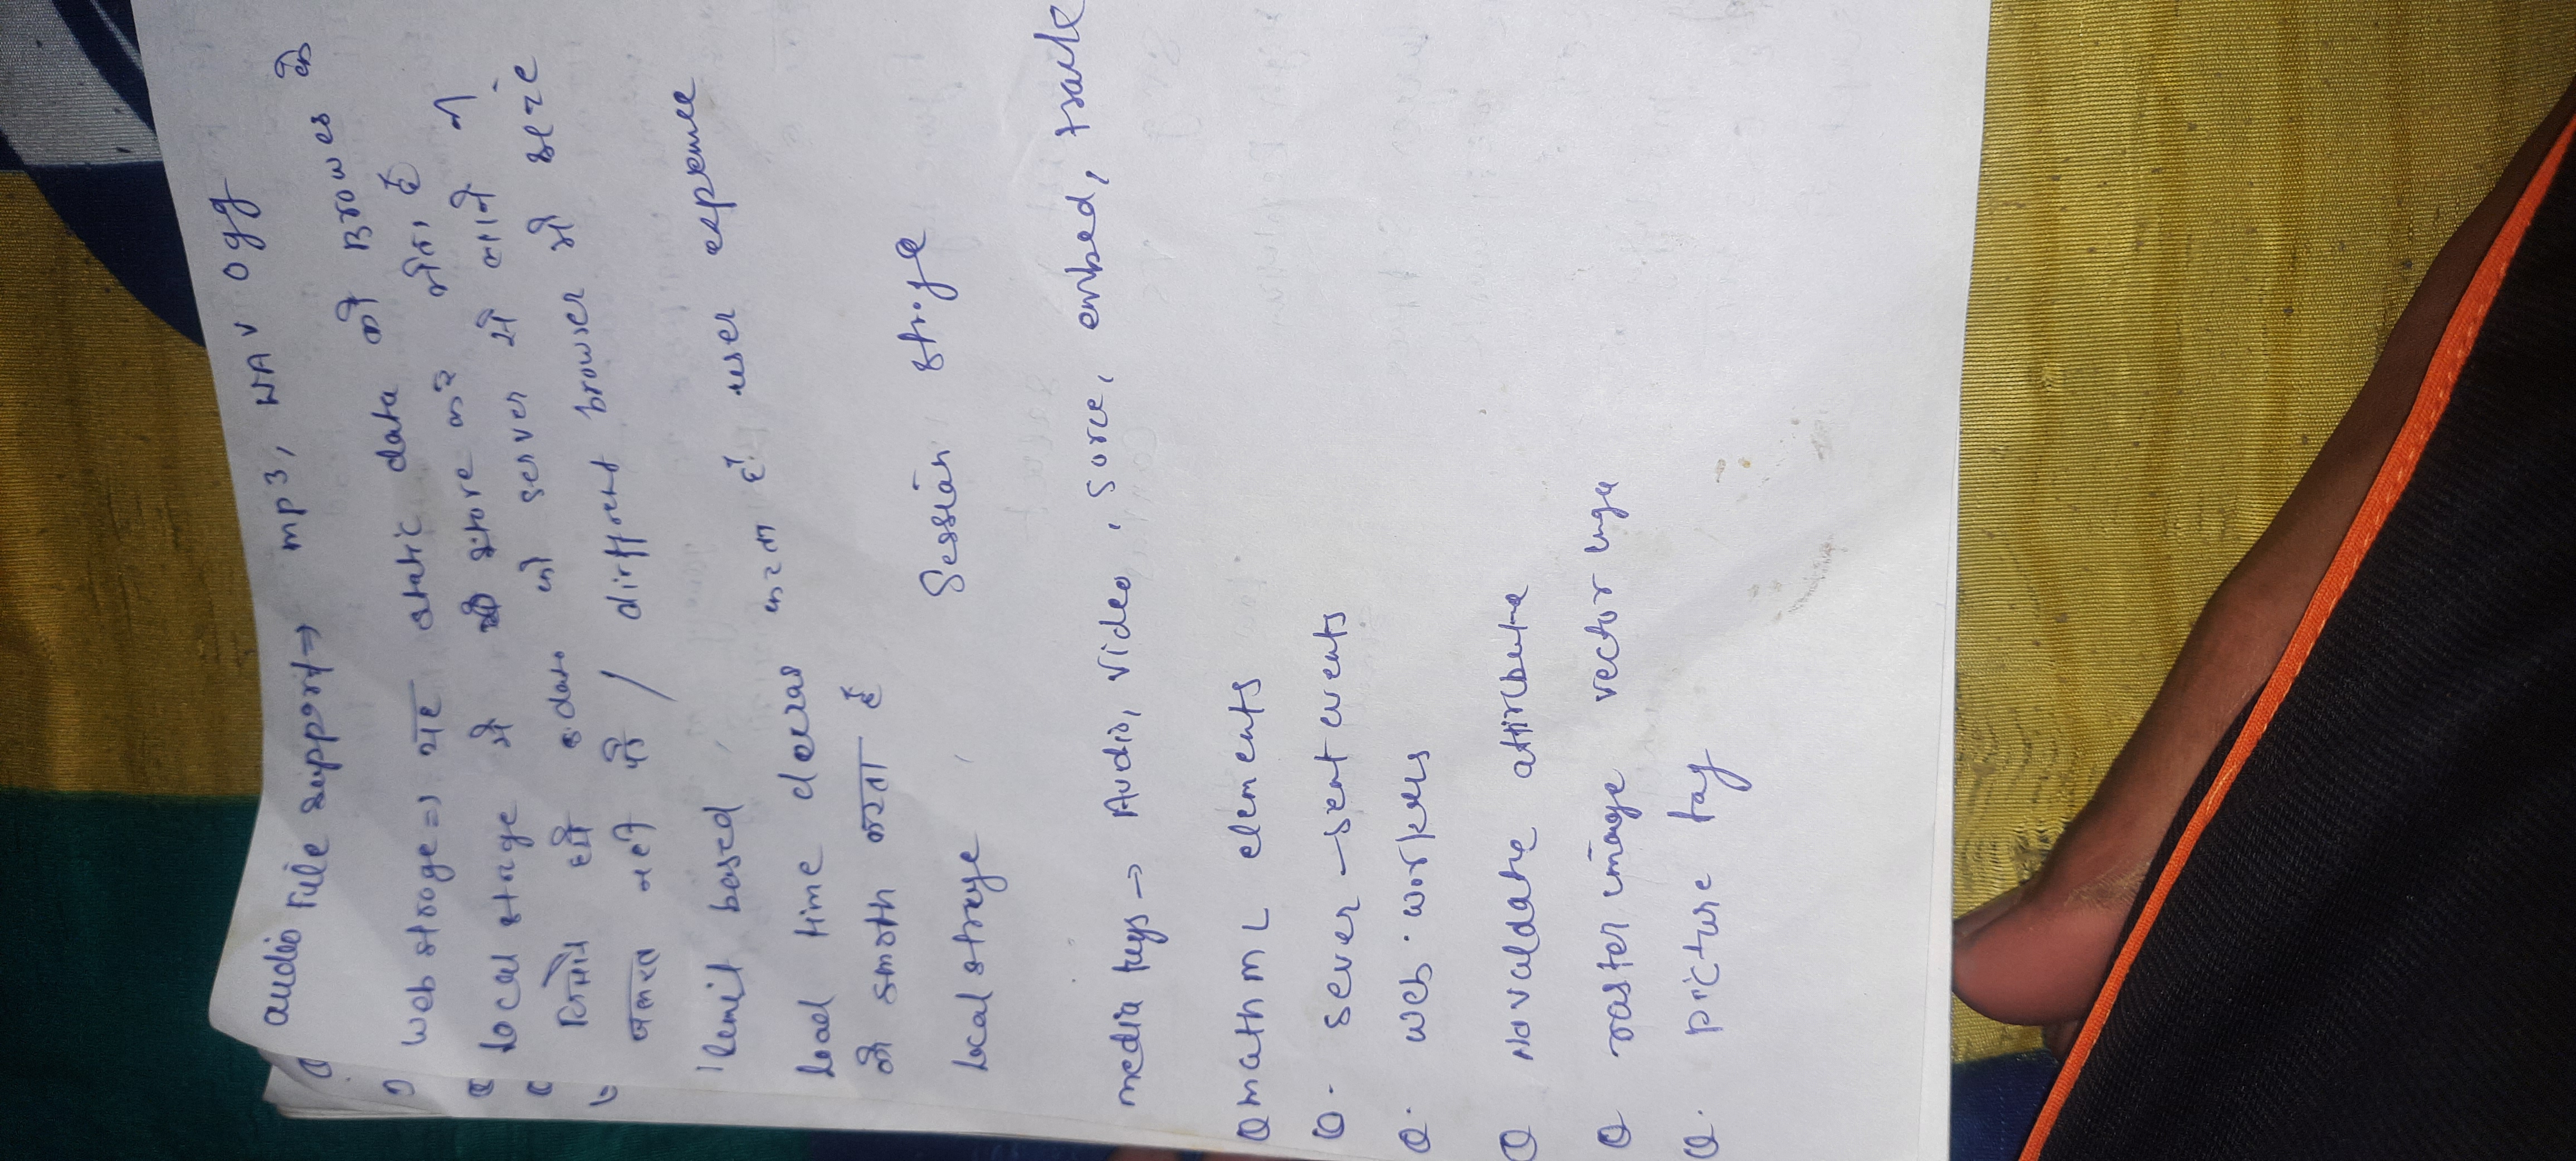 audio File support ⇒ mp3, WAV Ogg
web stroge ⇒ यह static data को Browes के
local stroge मे store कर लेता है
जिससे हमे data को server से लाने की
जरूरत नही पडे / dirfferent browser मे
limit based
load time करता है user
को smoth करता है
local stroge Session stroge
media tags → Audio, Video, Sorce, embed, track
Q mathmL elements
Q. Sever-sent events
Q. web workers
Q Novaldate attribute
Q raster image vector
Q. picture tag